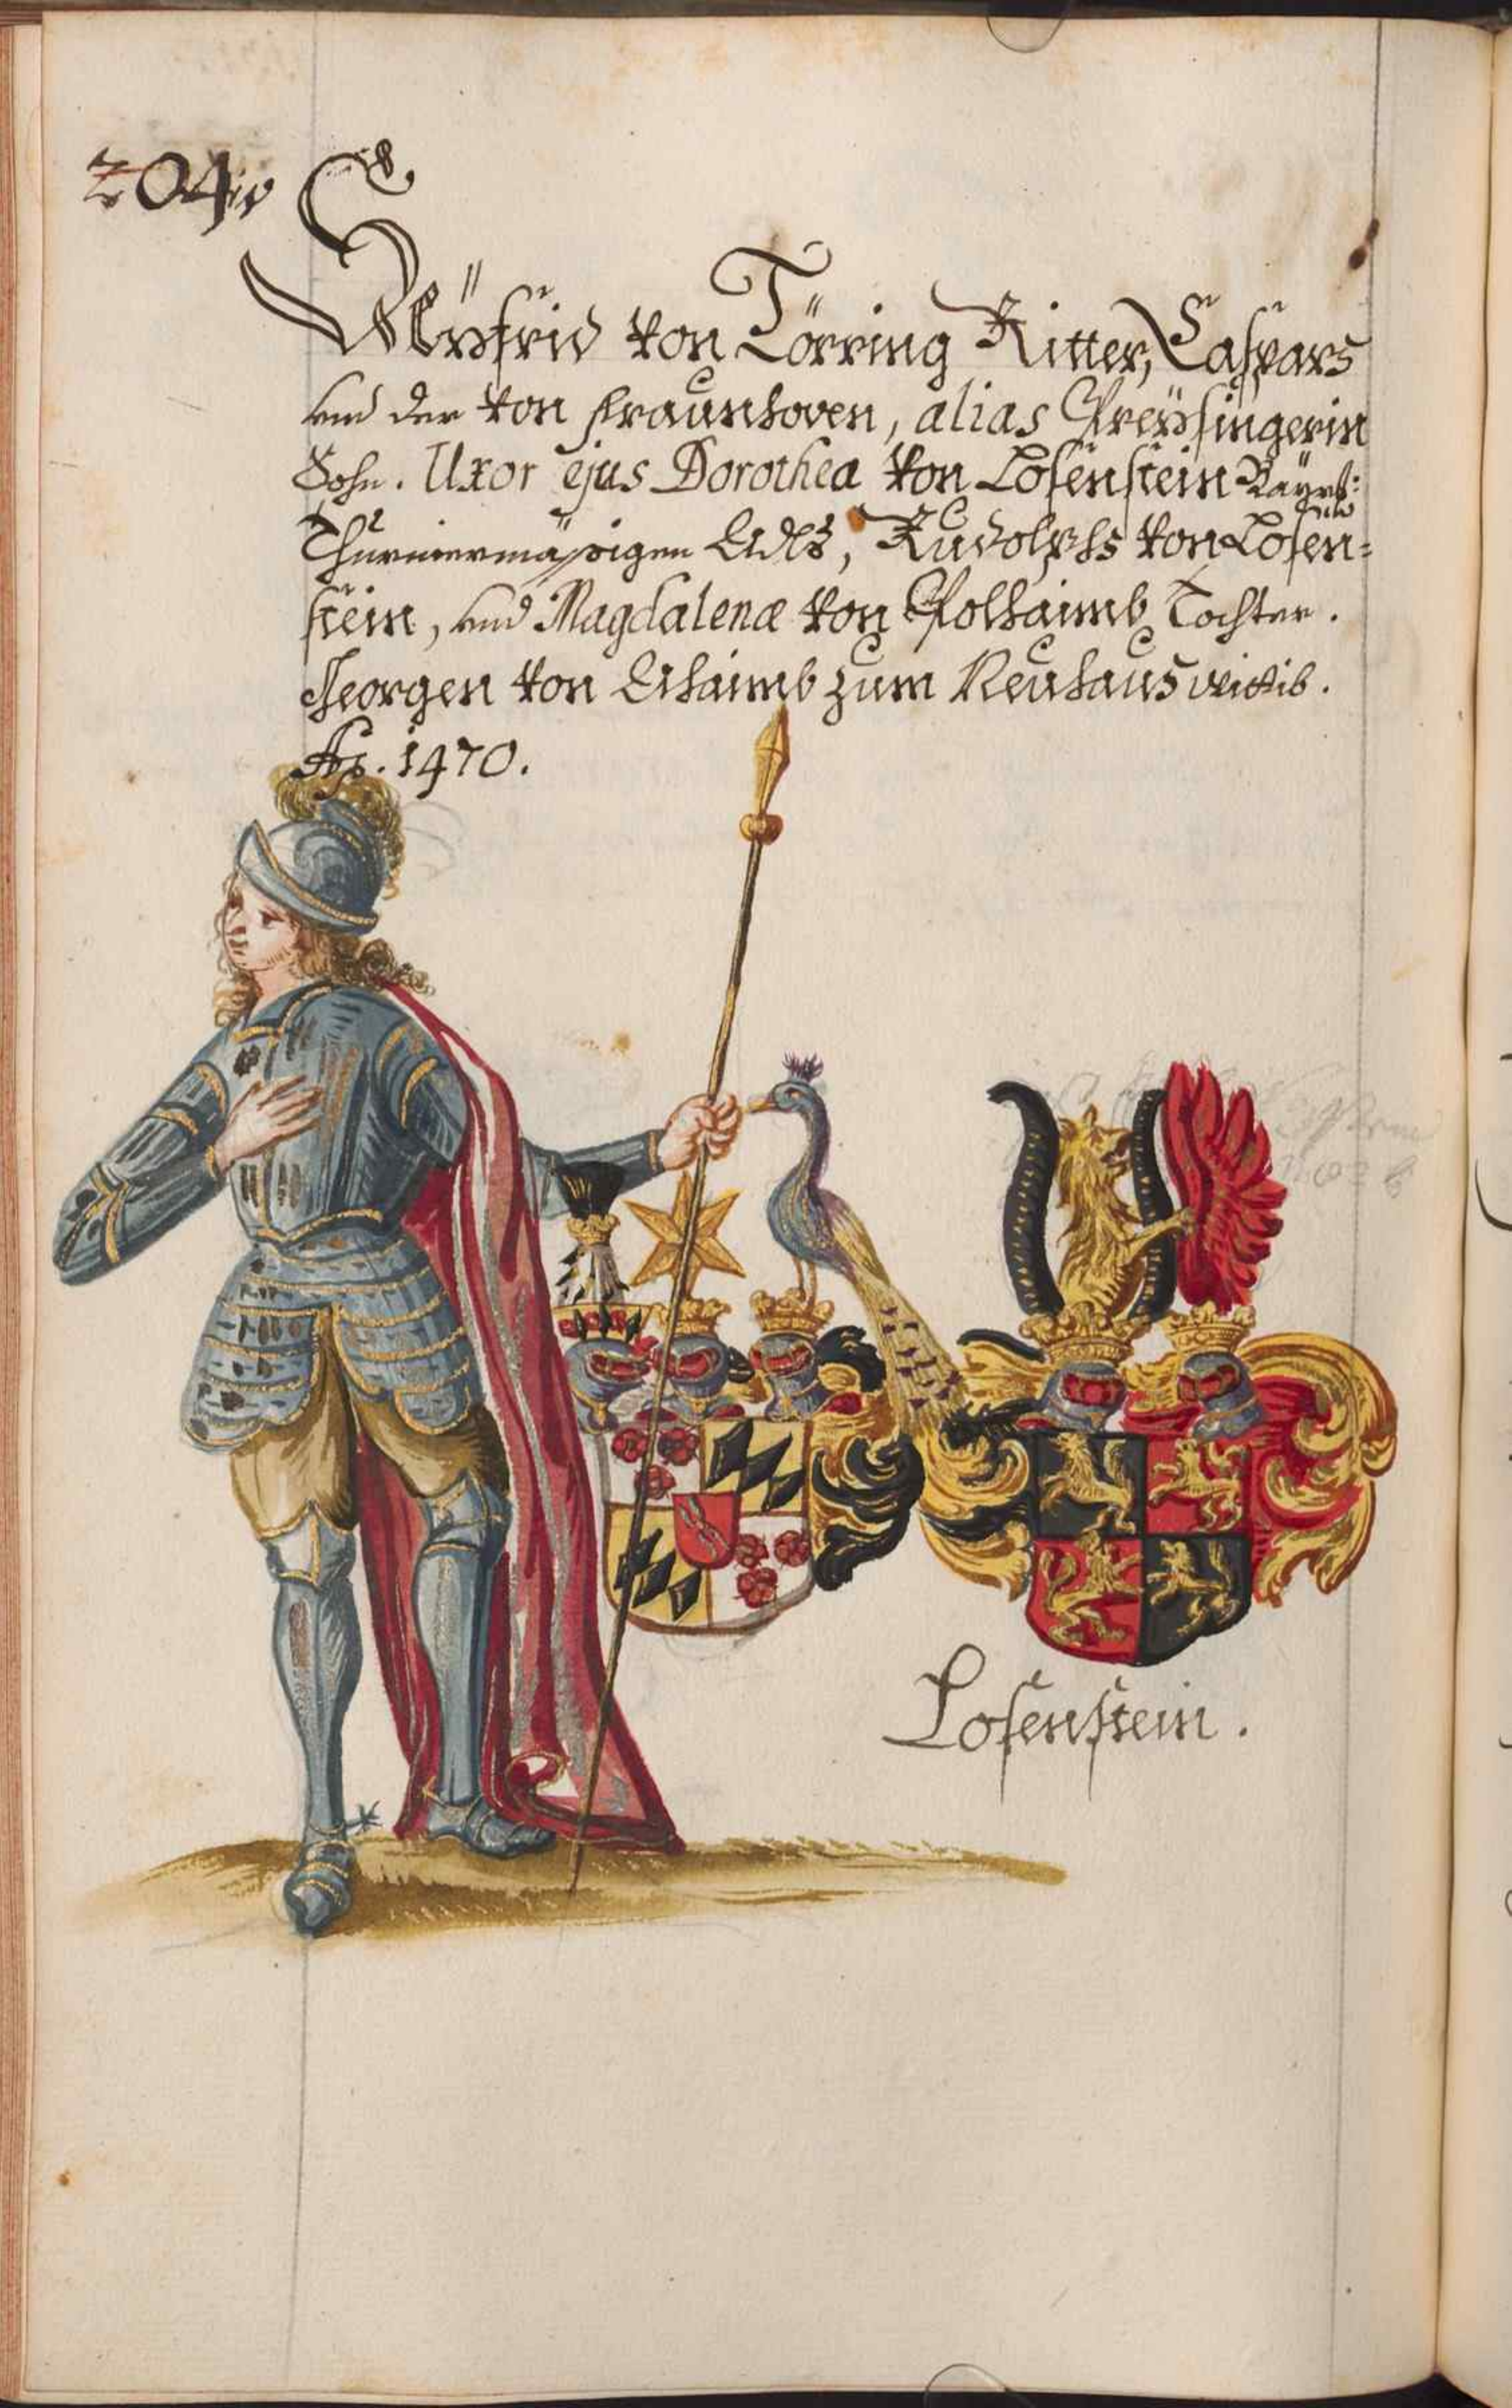 204
Seyfrid von Törring Ritter, Caspars
und der von Fraunhoven, alias Preysingerin
Sohn. Uxor ejus Dorothea von Losenstein Bayrisch
Thurniermässigen Adls, Rudolphs von Losen=
stein, und Magdalenæ von Polhaimb Tochter.
Georgen von Ahaimb zum Neuhaus
Ao. 1470.
Losenstein.